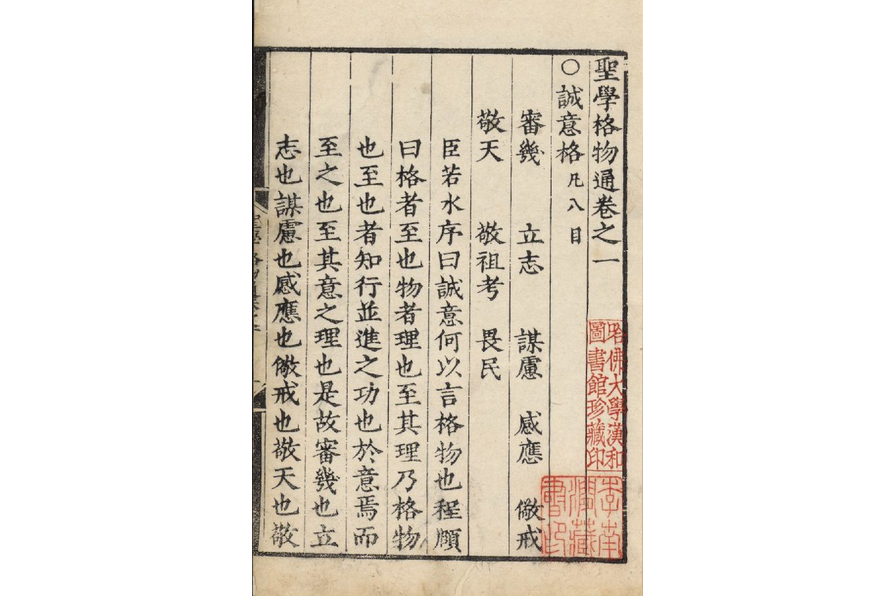 聖學格物通卷之一
○誠意格凡八目
審幾 立志 謀慮 感應 儆戒
敬天 敬祖考 畏民
臣若水序曰誠意何以言格物也程頤
曰格者至也物者理也至其理乃格物
也至也者知行並進之功也於意焉而
至之也至其意之理也是故審幾也立
志也謀慮也感應也儆戒也敬天也敬
哈佛大學漢和
圖書館珍藏印